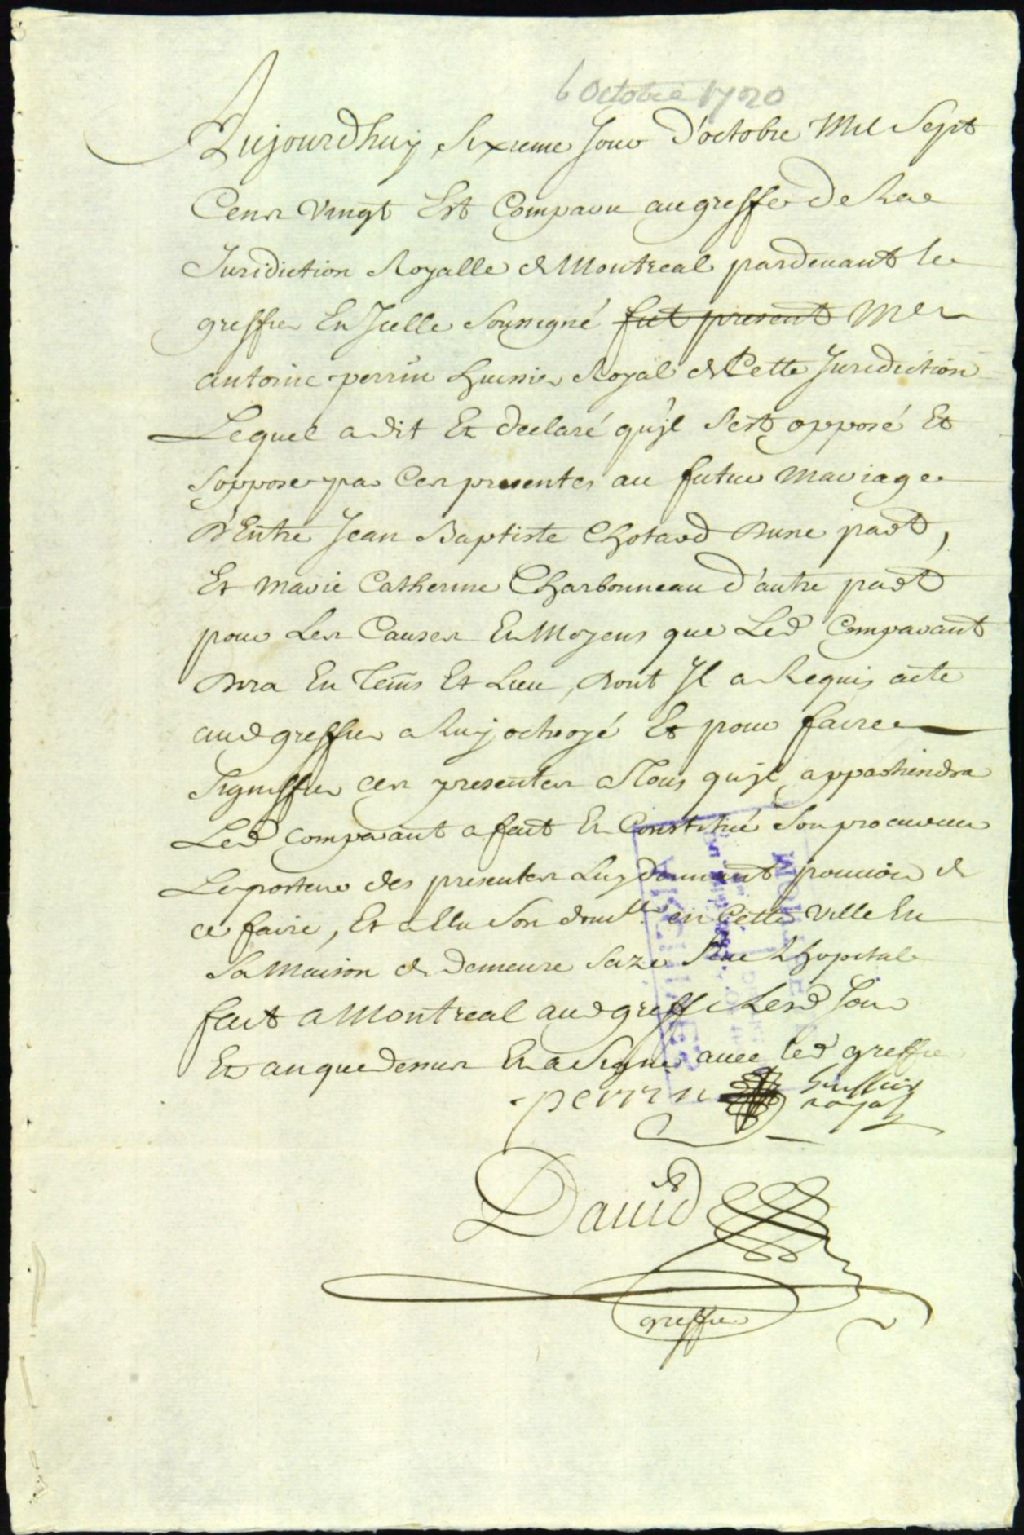 6 Octobre 1720
Aujourdhuy Sixieme Jour d'octobre Mil Sept
Cens Vingt Est Comparu au greffe De La
Juridiction Royalle de Montreal pardevant le
greffier En Icelle Soussigné fut present Me
antoine perrin huissier Royal de Cette Juridiction
Lequel a dit Et declaré qu'jl Sest opposé Et
Soppose par Ces presentes au futur Mariage
D'Entre Jean Baptiste Chotard Dune part,
Et Marie Catherine Charbonneau d'autre part
pour Les Causes Et Moyens que Led Comparant
Dira En Tems Et Lieu, Dont Jl a Requis acte
aud greffier a Luy octroyé Et pour faire
Signiffier ces presentes a Tous qu'jl appartiendra
Led comparant a fait Et Constitué Son procureur
Le porteur des presentes Luy donnant pouvoir de
ce faire, Et a Elu Son domlle en Cette Ville En
Sa Maison de Demeure Size Rue Lhopital
fait a Montreal aud greffe Lesd Jour
Et an que dessus Et a Signé avec led greffier
perrin huissier
royal
David
greffier